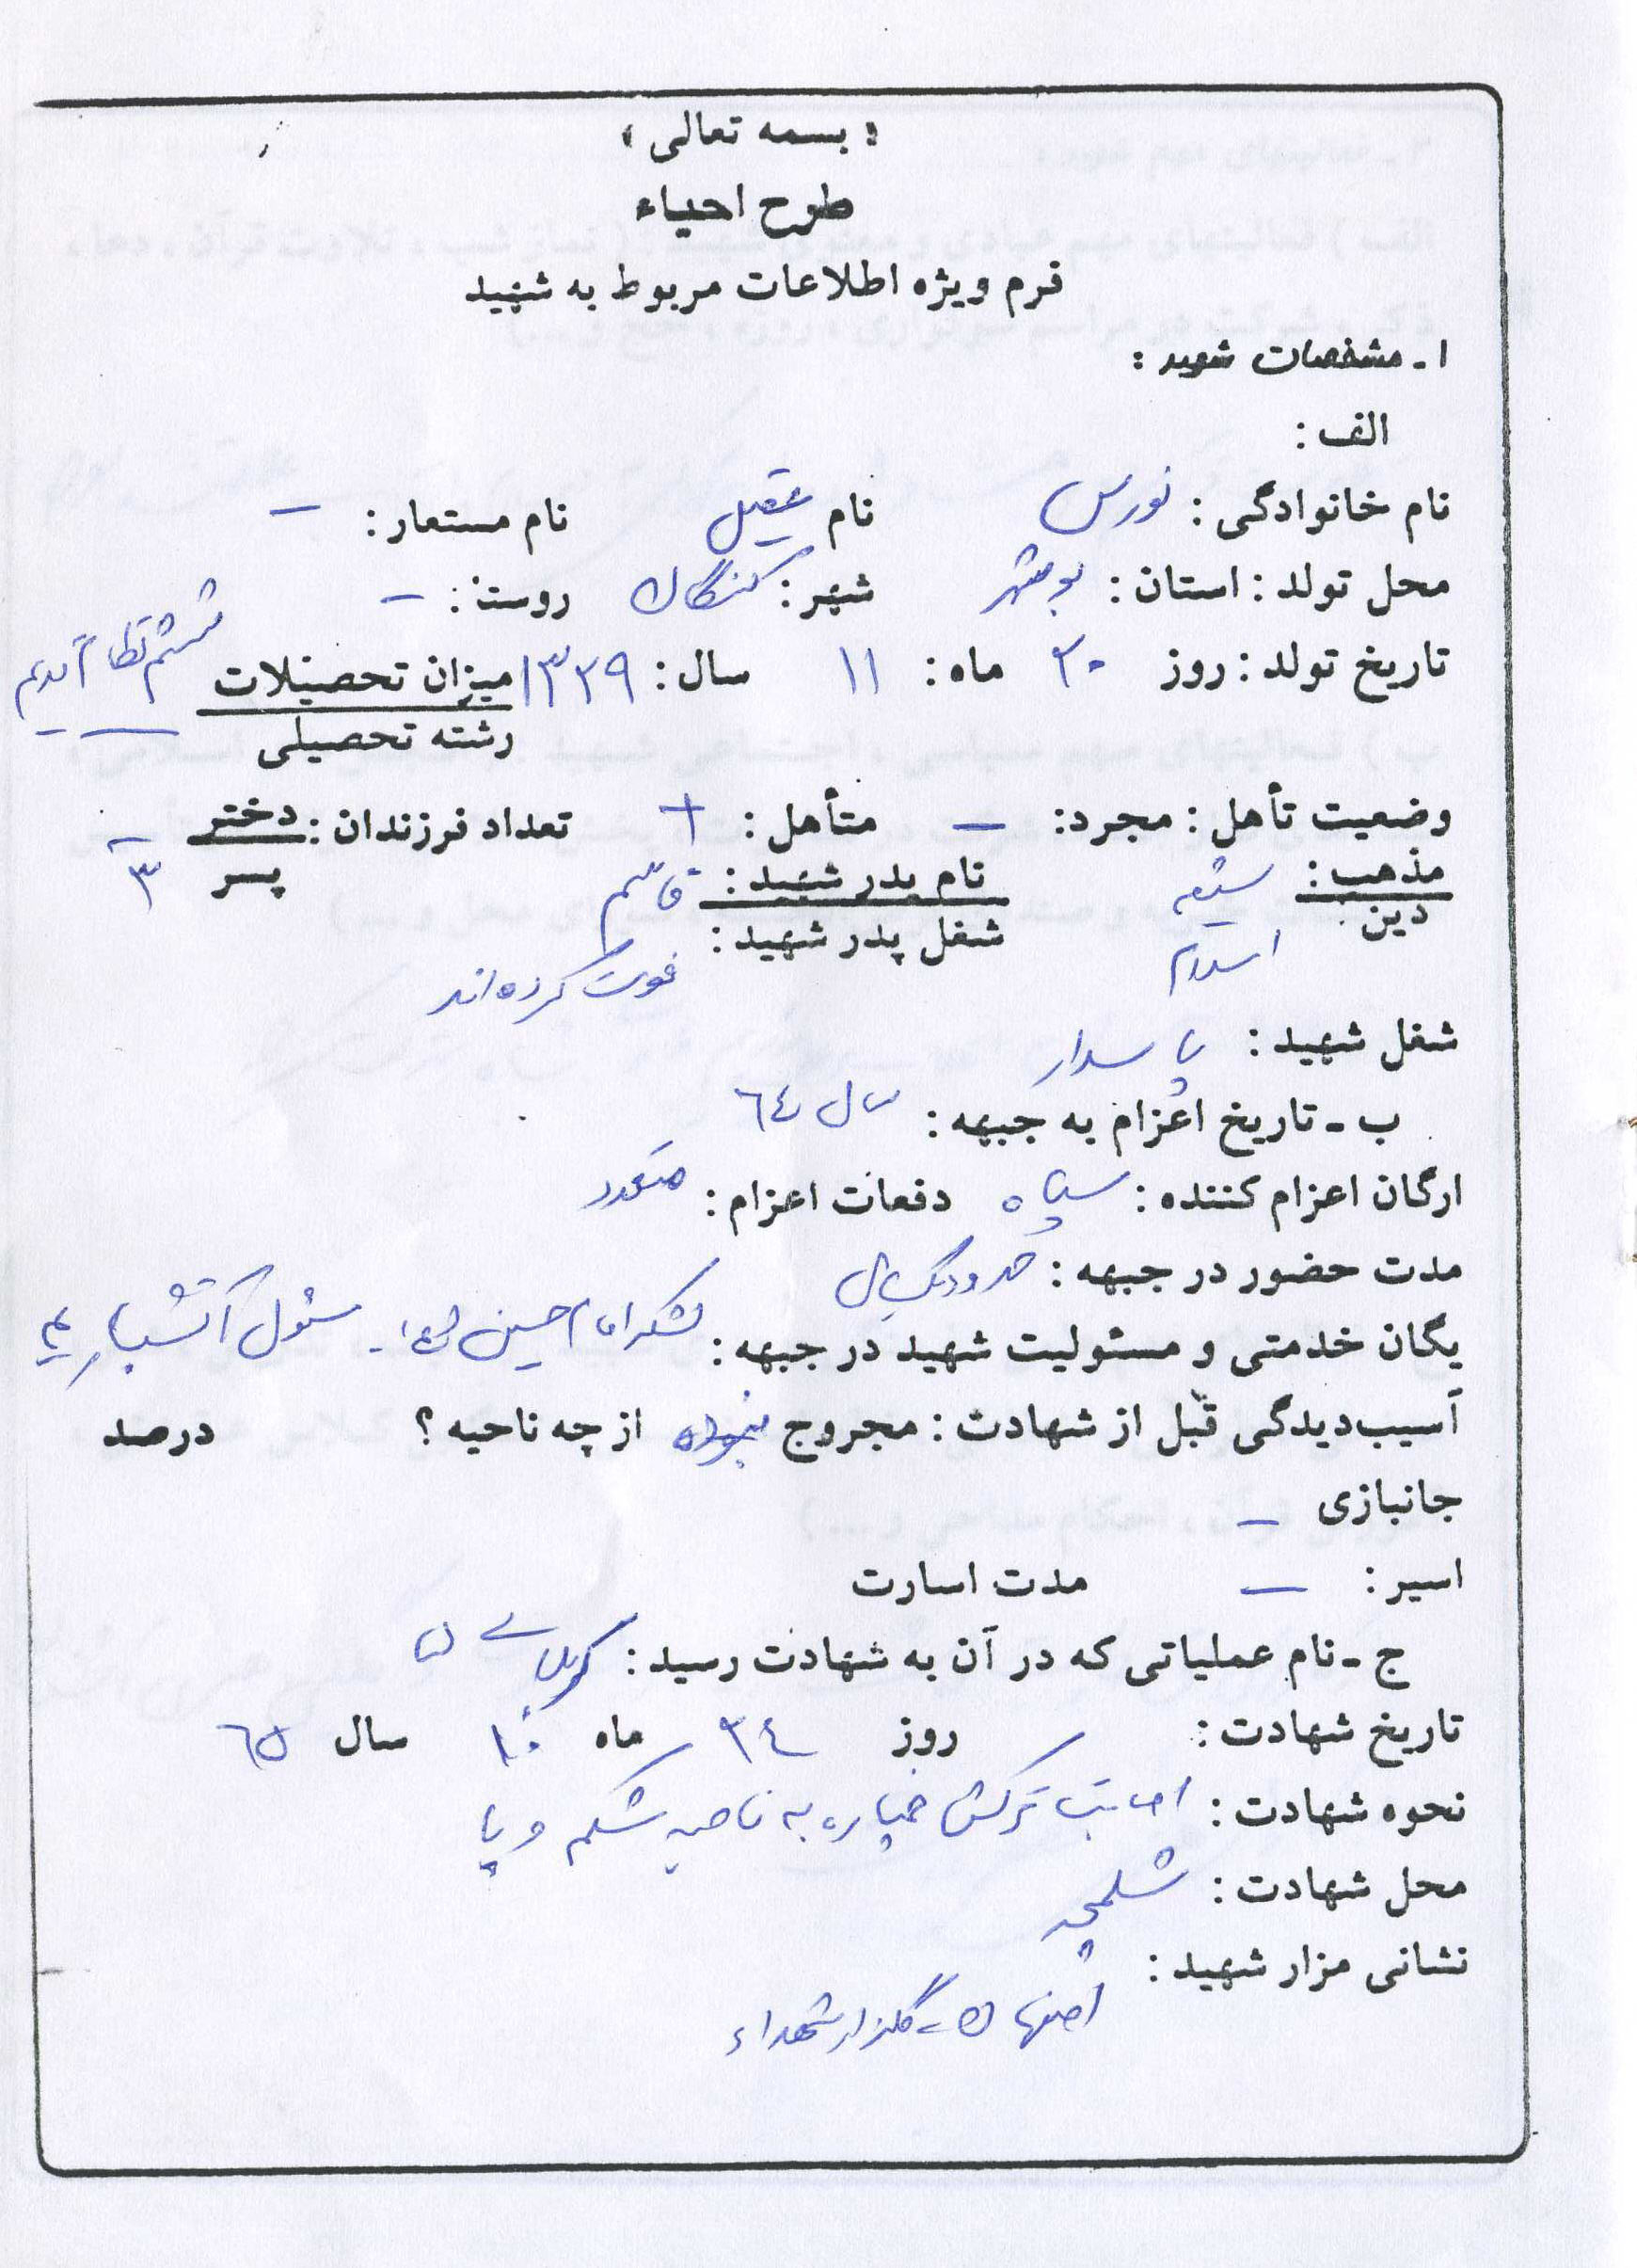 « بسمه تعالی »
طرح احیاء
فرم ویژه اطلاعات مربوط به شهید
۱ ـ مشخصات شهید :
الف :
نام خانوادگی : نورس نام عقیل نام مستعار : –
محل تولد : استان : بوشهر شهر : کنگان روستا : –
تاریخ تولد : روز ۲۰ ماه : ۱۱ سال : ۱۳۳۹ میزان تحصیلات ششم نظام قدیم
رشته تحصیلی –
وضعیت تأهل : مجرد : – متأهل : + تعداد فرزندان : دختر –
پسر ۳
مذهب : شیعه نام پدر شهید : قاسم
دین : اسلام شغل پدر شهید : فوت کرده‌اند
شغل شهید : پاسدار
ب ـ تاریخ اعزام به جبهه : سال ٦٤
ارگان اعزام کننده : سپاه دفعات اعزام : متعدد
مدت حضور در جبهه : حدود یکسال
یگان خدمتی و مسئولیت شهید در جبهه : لشکر امام حسین (ع) ـ مسئول آتشبار
آسیب‌دیدگی قبل از شهادت : مجروح نبوده از چه ناحیه ؟ درصد
جانبازی –
اسیر : – مدت اسارت
ج ـ نام عملیاتی که در آن به شهادت رسید : کربلای ۵
تاریخ شهادت : روز ۲٤ ماه ۱۰ سال ٦۵
نحوه شهادت : اصابت ترکش خمپاره به ناحیه شکم و پا
محل شهادت : شلمچه
نشانی مزار شهید :
اصفهان – گلزار شهداء